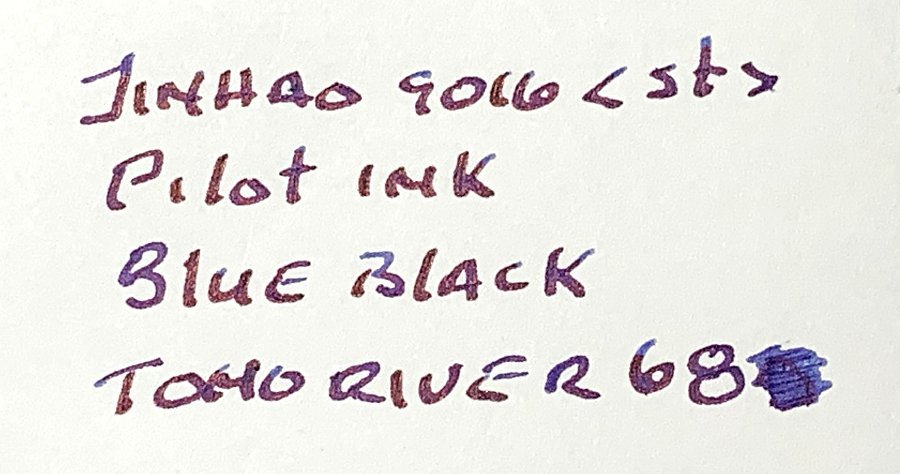 JINHAO 9016 < St >
Pilot INK
BluE BlACK
TOMO RIVER 68